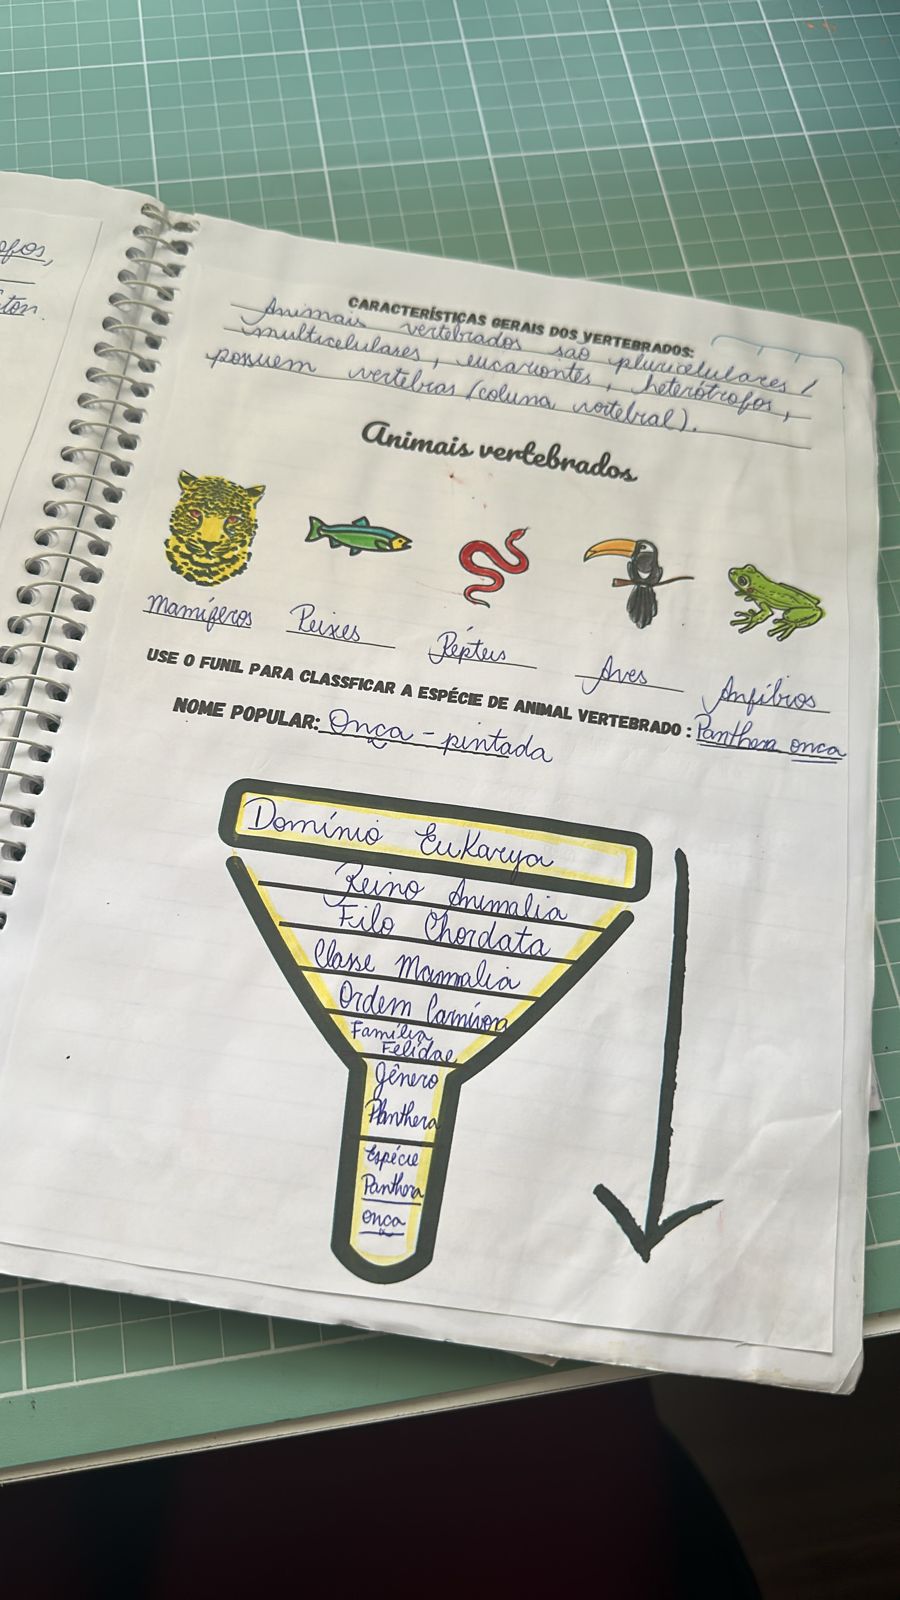 ofos,
ton.
CARACTERÍSTICAS GERAIS DOS VERTEBRADOS:
Animais vertebrados são pluricelulares /
multicelulares, eucariontes, heterótrofos,
possuem vértebras (coluna vertebral).
Animais vertebrados
Mamíferos Peixes Répteis Aves Anfíbios
USE O FUNIL PARA CLASSFICAR A ESPÉCIE DE ANIMAL VERTEBRADO : Panthera onca
NOME POPULAR: Onça - pintada
Domínio Eukarya
Reino Animalia
Filo Chordata
Classe Mammalia
Ordem Carnivora
Família
Felidae
Gênero
Panthera
Espécie
Panthera
onça